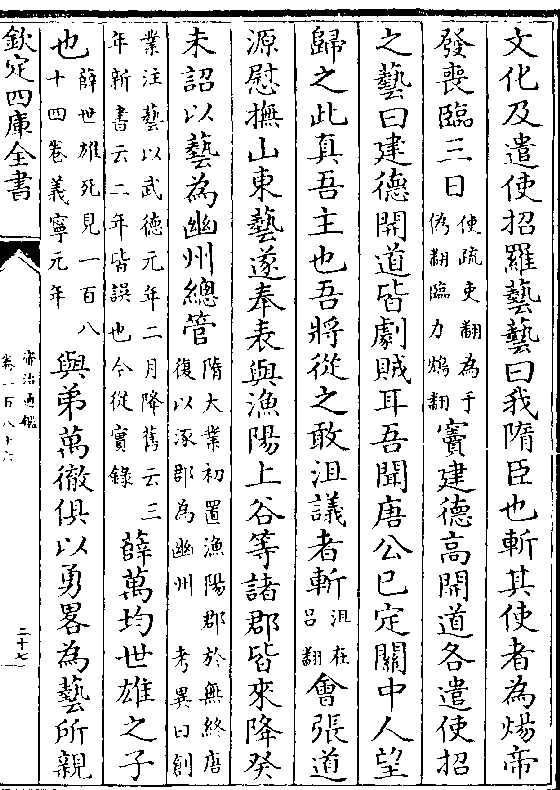 文化及遣使招羅藝藝曰我隋臣也斬其使者為煬帝
發喪臨三日使疏吏翻為于偽翻臨力鴆翻竇建德高開道各遣使招
之藝曰建德開道皆劇賊耳吾聞唐公已定關中人望
歸之此真吾主也吾將從之敢沮議者斬沮在呂翻會張道
源慰撫山東藝遂奉表與漁陽上谷等諸郡皆來降癸
未詔以藝為幽州總管隋大業初置漁陽郡於無終唐復以涿郡為幽州 考異曰創
業注藝以武德元年二月降舊云三年新書云二年皆誤也今從實錄薛萬均世雄之子
也薛世雄死見一百八十四卷義寧元年與弟萬徹俱以勇畧為藝所親
欽定四庫全書
資治通鑑
卷一百八十六
二十七